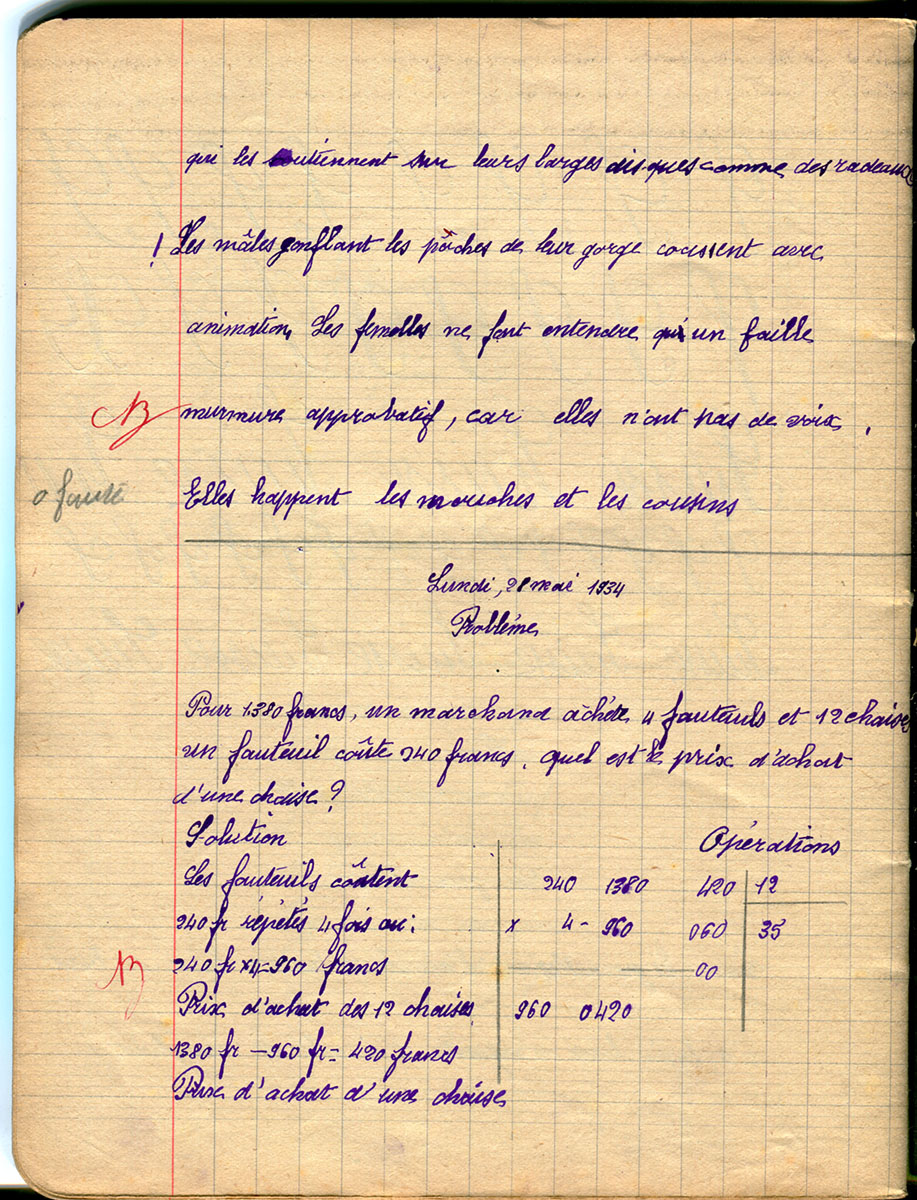 qui les soutiennent sur leurs larges disques comme des radeaux
! Les mâles gonflant les pôches de leur gorge coassent avec
animation. Les femelles ne font entendre qu'un faille
B murmure approbatif, car elles n'ont pas de voix.
0 faute Elles happent les mouches et les cousins
Lundi, 28 mai 1934
Problème
Pour 1380 francs, un marchand achète 4 fauteuils et 12 chaises
un fauteuil coûte 240 francs. quel est le prix d'achat
d'une chaise ?
Solution Opérations
Les fauteuils coûtent 240 1380 420 12
240 fr répétés 4 fois ou: x 4 - 960 060 35
B 240 fr x 4 = 960 francs 00
Prix d'achat des 12 chaises 960 0420
1380 fr - 960 fr = 420 francs
Prix d'achat d'une chaise